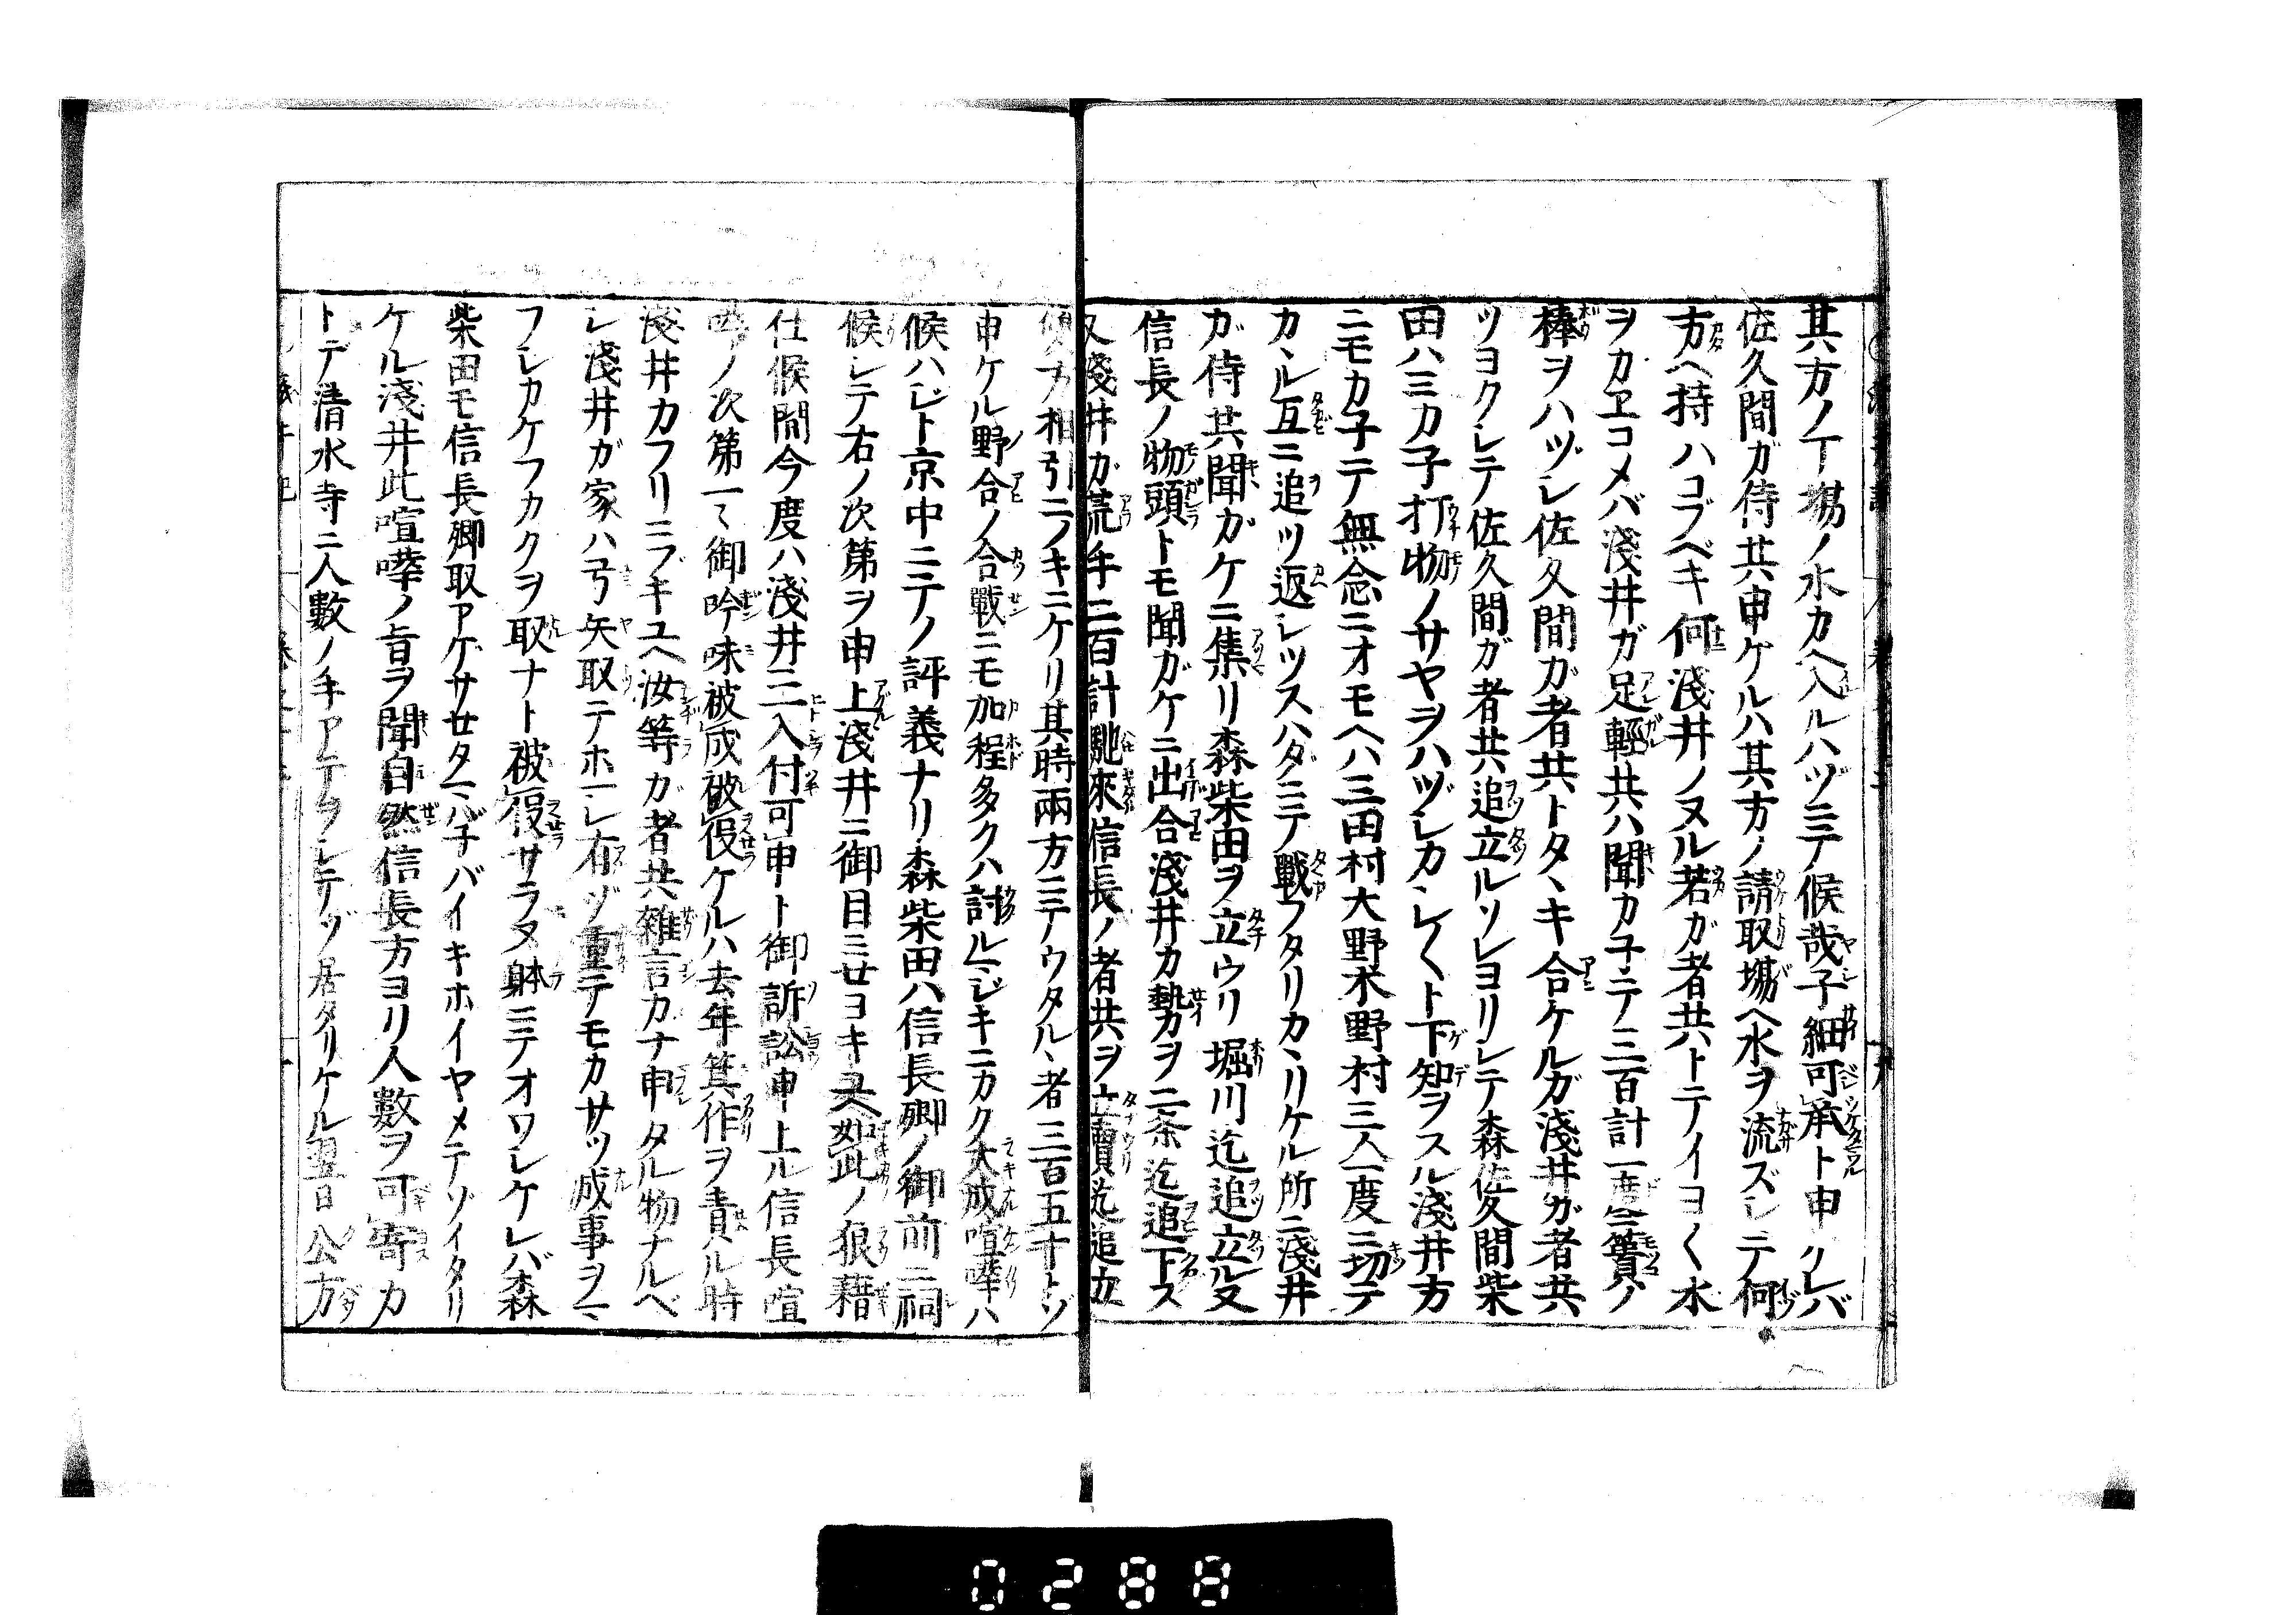 其方ノ丁場ノ水カヘ入ルハヅミニテ候哉子細可承ト申ケレバ
佐久間ガ侍共申ケルハ其方ノ請取場ヘ水ヲ流ズシテ何
方ヘ持ハコブベキ何淺井ノヌル若ガ者共トテイヨ〱水
ヲカヱコメバ淺井ガ足輕共ハ聞カ子ニテ三百計一度ニ簣ノ
棒ヲハヅシ佐久間ガ者共トタヽキ合ケルガ淺井ガ者共
ツヨクシテ佐久間ガ者共追立ルソレヨリシテ森佐久間柴
田ハミカ子打物ノサヤヲハヅシカヽレ〱ト下知ヲスル淺井方
ニモカ子テ無念ニオモヘハ三田村大野木野村三人一度ニ切テ
カヽル互ニ追ツ返シツスハダニテ戰フタリカヽリケル所ニ淺井
ガ侍共聞ガケニ集リ森柴田ヲ立ウリ堀川迄追立ル又
信長ノ物頭トモ聞ガケニ出合淺井カ勢ヲ二条迄追下ス
又淺井ガ荒手二百計馳來信長ノ者共ヲ立賣迄追カ
ケ相引ニノキニケリ其時兩方ニテウタルヽ者三百五十トゾ
申ケル野合ノ合戰ニモ加程多クハ討ルマジキニカク大成喧嘩ハ
候ハジト京中ニテノ評義ナリ森柴田ハ信長卿ノ御前ニ祠
候シテ右ノ次第ヲ申上淺井ニ御目ミせヨキユヘ如此ノ狼藉
仕候間今度ハ淺井ニ一入付可申ト御訴訟申上ル信長喧
嘩ノ次第一々御吟味被成被仰ケルハ去年箕作ヲ責ル時
淺井カフリニブキユヘ汝等ガ者共雜言カナ申タル物ナルベ
シ淺井ガ家ハ弓矢取テホマレ有ゾ重テモカサツ成事ヲ云
フレカケフカクヲ取ナト被仰サラヌ躰ニテオワシケレバ森
柴田モ信長卿取アゲサせタマハ子バイキホイヤメテゾイタリ
ケル淺井此喧嘩ノ旨ヲ聞自然信長方ヨリ人數ヲ可寄カ
トテ清水寺ニ人數ノ手アテヲシテゾ居タリケル翌日公方
0288